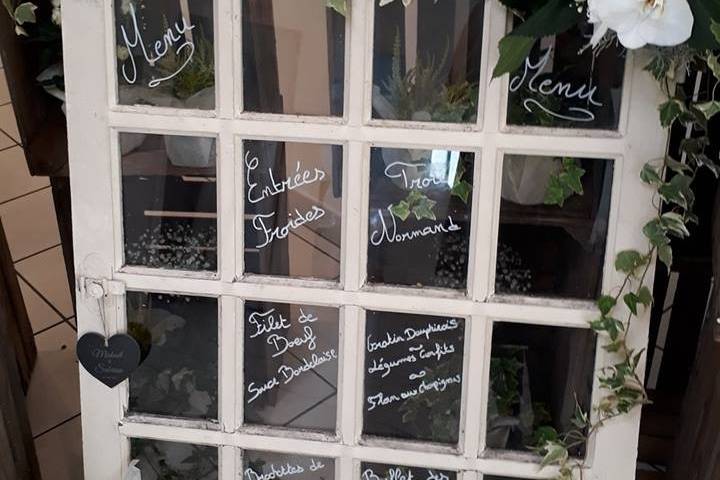 Menu
Menu
6
Entrées
Froides
Trou
Normand
Filet de
Boeuf
Sauce Bordelaise
Gratin Dauphinois
~
Légumes Confits
~
Flan aux champignons
de
Buffet des